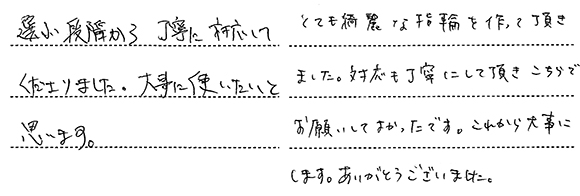 選ぶ段階から丁寧に対応して
くださりました。大事に使いたいと
思います。
とても綺麗な指輪を作って頂き
ました。対応も丁寧にして頂きこちらで
お願いしてよかったです。これから大事に
します。ありがとうございました。